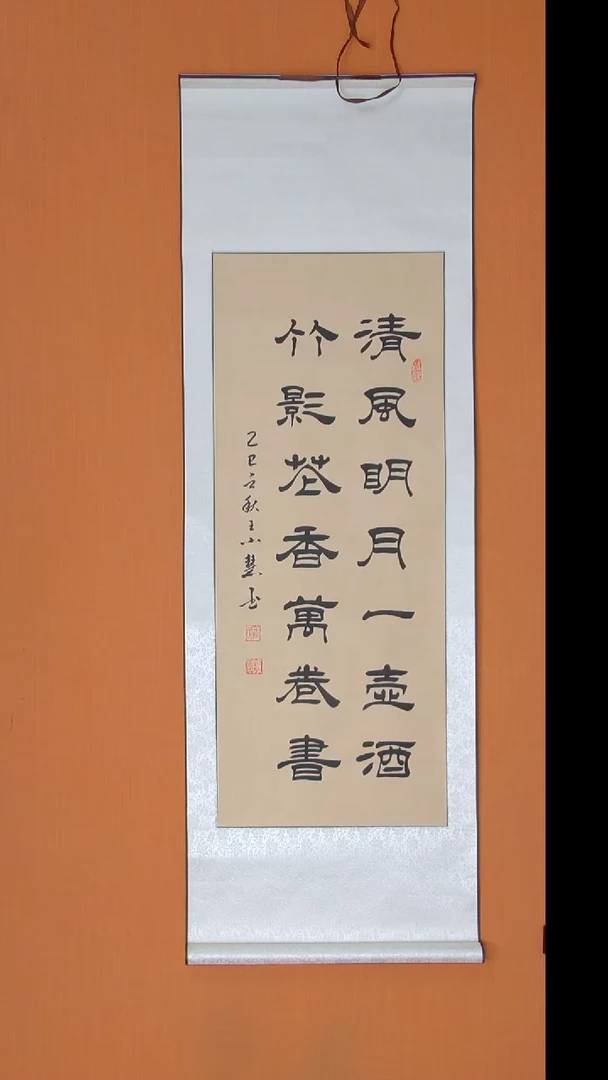 清風明月一壺酒
竹影花香萬卷書
乙巳立秋王小慧書